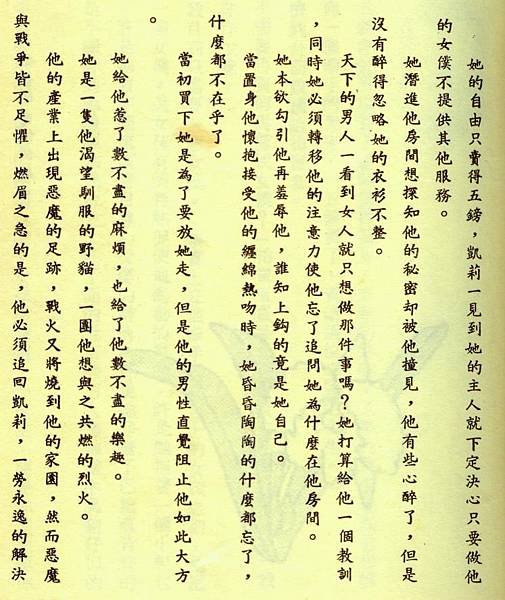 她的自由只賣得五鎊，凱莉一見到她的主人就下定決心只要做他
的女僕不提供其他服務。
她潛進他房間想探知他的秘密却被他撞見，他有些心醉了，但是
沒有醉得忽略她的衣衫不整。
天下的男人一看到女人就只想做那件事嗎？她打算給他一個教訓
，同時她必須轉移他的注意力使他忘了追問她為什麼在他房間。
她本欲勾引他再羞辱他，誰知上鈎的竟是她自己。
當置身他懷抱接受他的纏綿熱吻時，她昏昏陶陶的什麼都忘了，
什麼都不在乎了。
當初買下她是為了要放她走，但是他的男性直覺阻止他如此大方
。
她給他惹了數不盡的麻煩，也給了他數不盡的樂趣。
她是一隻他渴望馴服的野貓，一團他想與之共燃的烈火。
他的產業上出現惡魔的足跡，戰火又將燒到他的家園，然而惡魔
與戰爭皆不足懼，燃眉之急的是，他必須追回凱莉，一勞永逸的解決